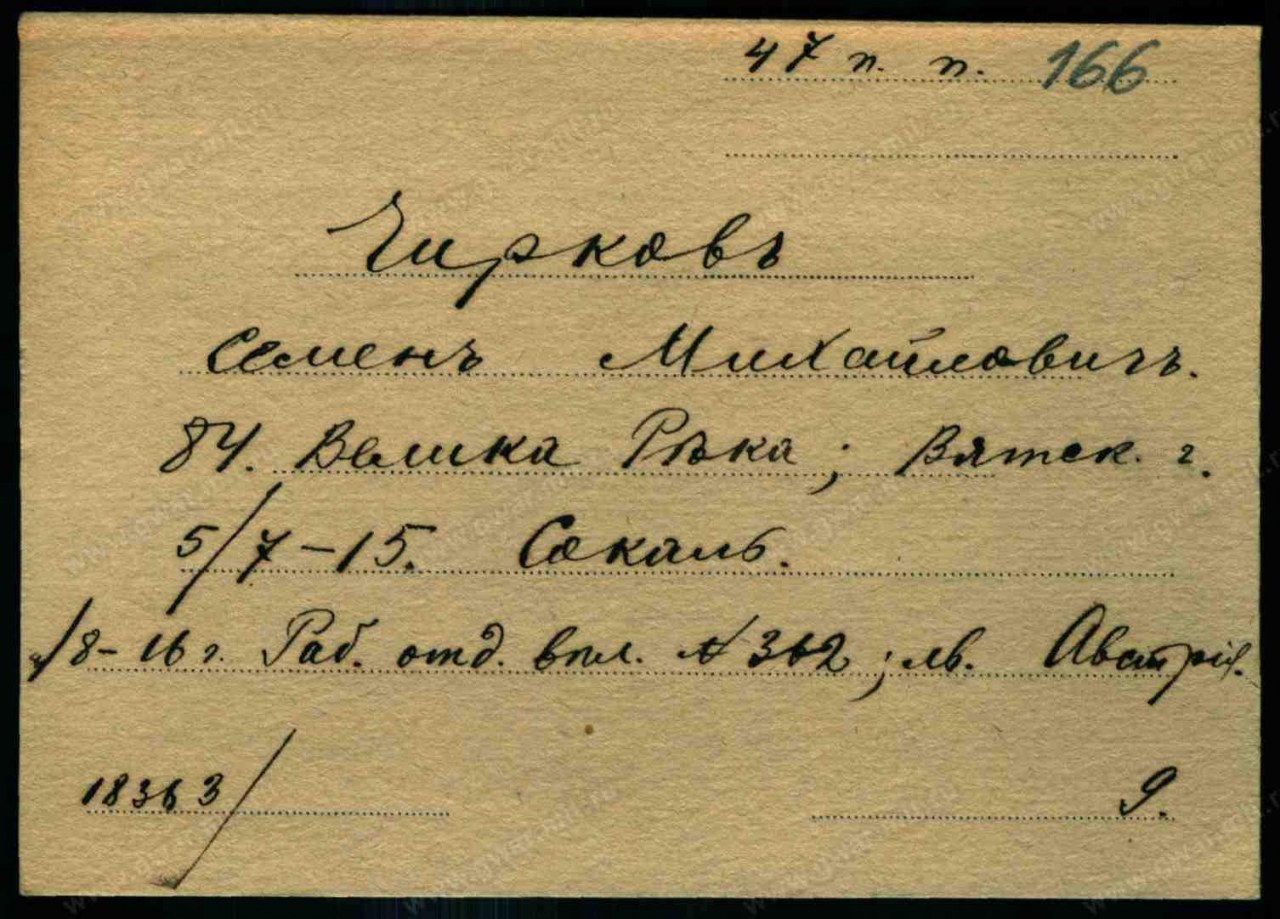 47 п. п. 166
Чирковъ
Семенъ Михайловичъ.
84. Велика Рѣка; Вятск. г.
5/7-15. Сокаль.
/8-16 г. Раб. отд. впл. № 362; лв. Австрія.
18363/ 9.